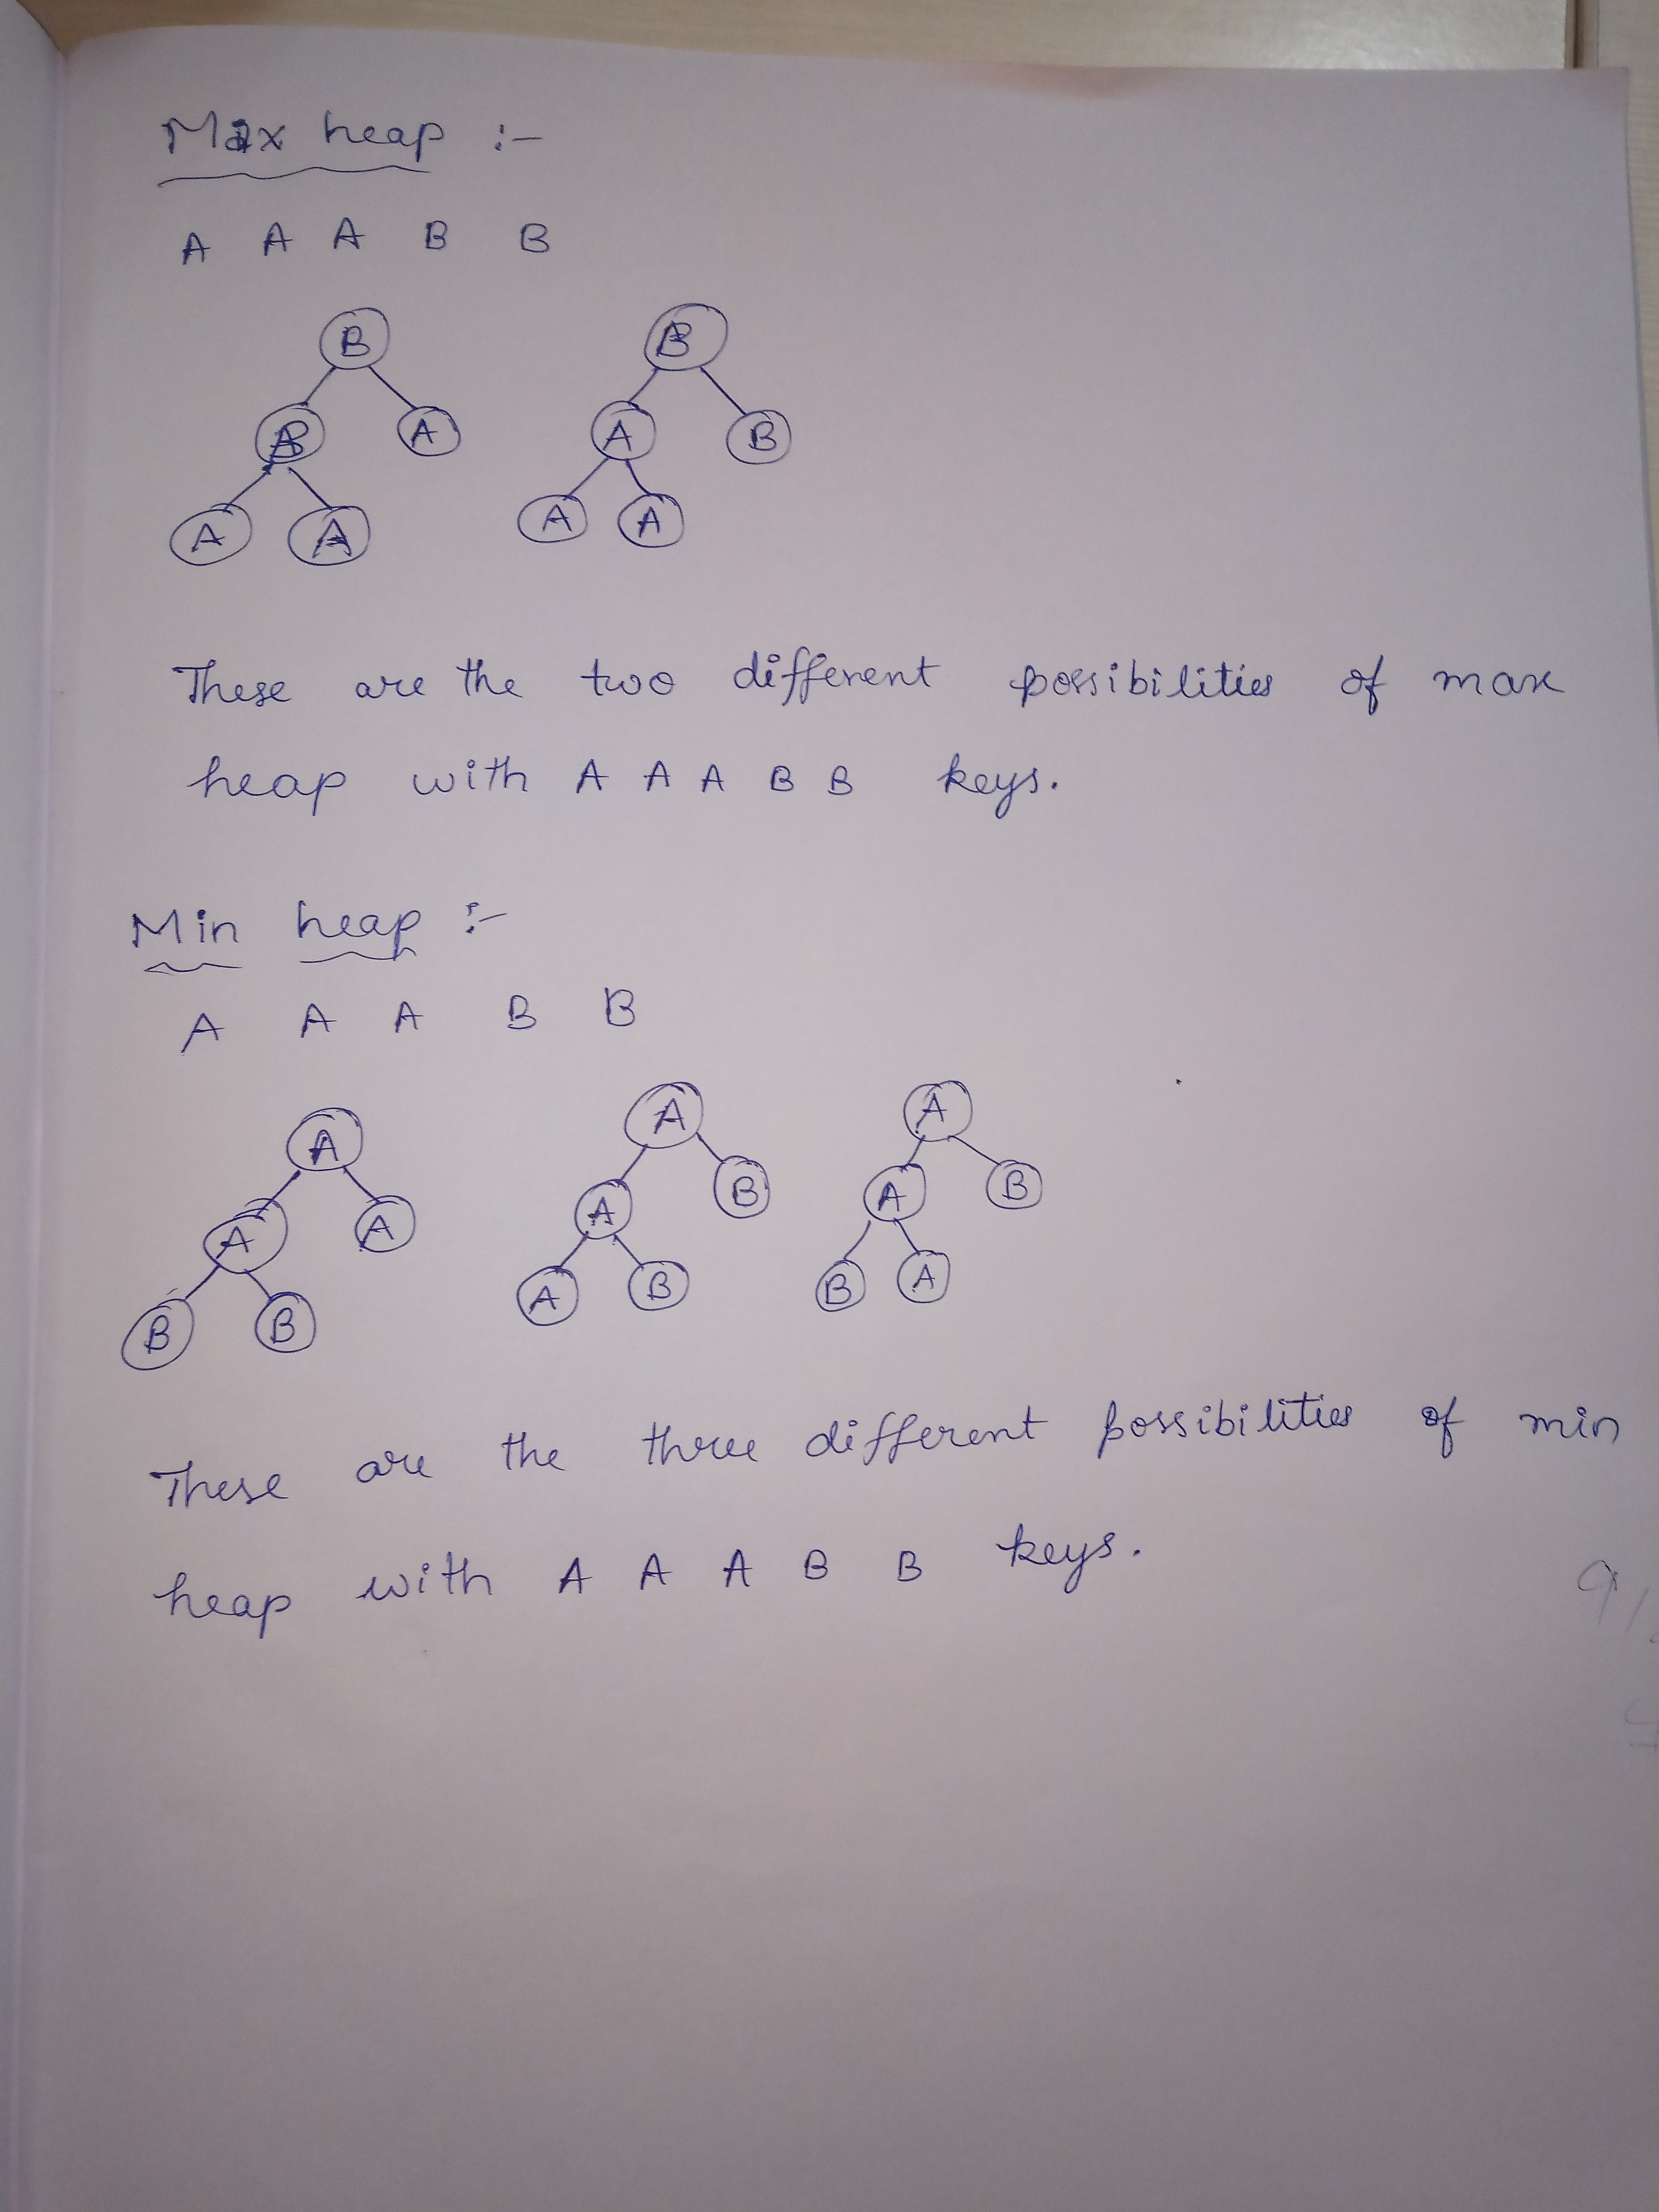 Max heap :-
A A A B B
B B
B A A B
A A A A
These are the two different possibilities of max
heap with A A A B B keys.
Min heap :-
A A A B B
A A A
A A A B A B
B B A B B A
These are the three different possibilities of min
heap with A A A B B keys.